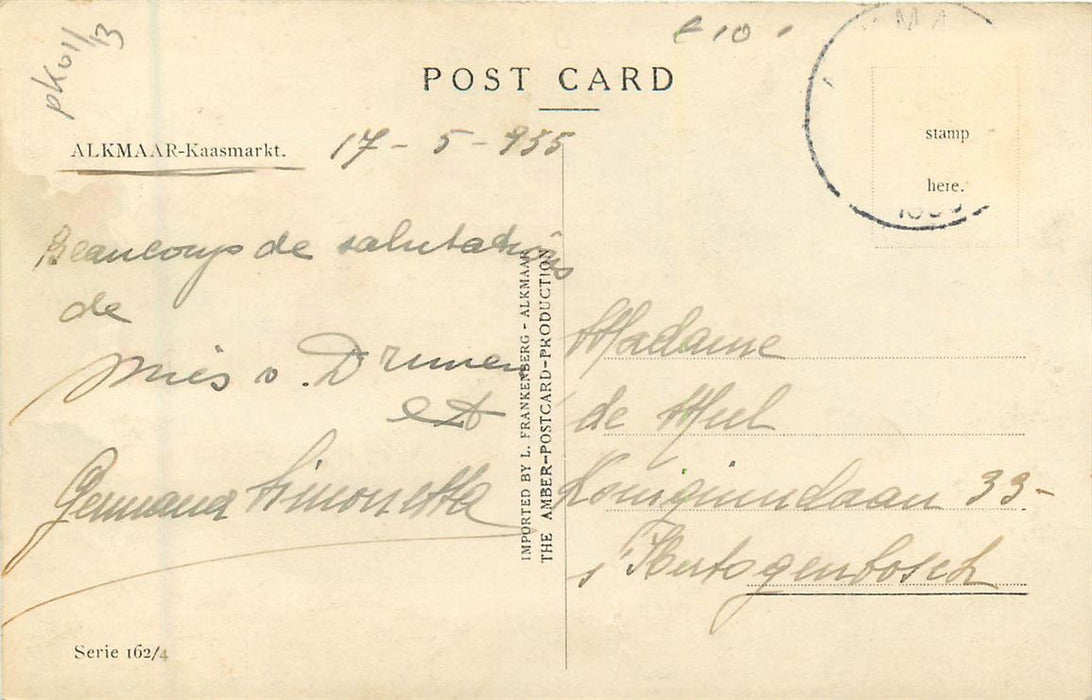 pk011/13
€10,
POST CARD
ALKMAAR-Kaasmarkt.
17-5-955
stamp
here.
Beaucoup de salutations
de
Mies v. Drunen
et
Germana Simonetta
IMPORTED BY L. FRANKENBERG - ALKMAAR
THE AMBER-POSTCARD-PRODUCTION
Madame
de Mul
Koninginnelaan 33-
's Hertogenbosch
Serie 162/4